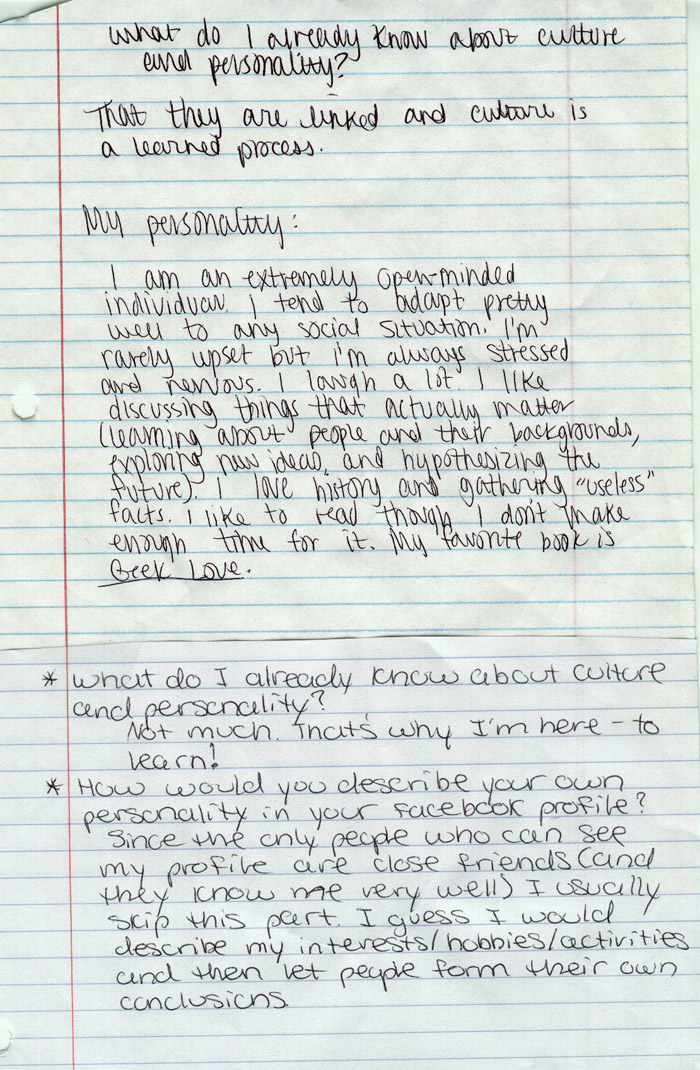 what do I already know about culture
and personality?
That they are linked and culture is
a learned process.
My personality:
I am an extremely open-minded
individual. I tend to adapt pretty
well to any social situation. I'm
rarely upset but i'm always stressed
and nervous. I laugh a lot. I like
discussing things that actually matter
(learning about people and their backgrounds,
exploring new ideas, and hypothesizing the
future). I love history and gathering "useless"
facts. I like to read though I don't make
enough time for it. My favorite book is
Geek Love.
* what do I already know about culture
and personality?
Not much. That's why I'm here - to
learn!
* How would you describe your own
personality in your facebook profile?
Since the only people who can see
my profile are close friends (and
they know me very well) I usually
skip this part. I guess I would
describe my interests/hobbies/activities
and then let people form their own
conclusions.